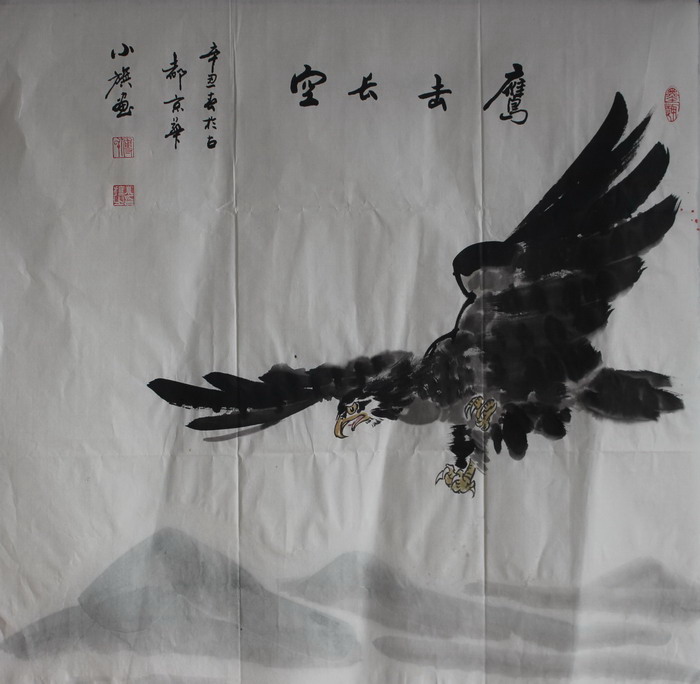 鷹击长空
辛丑夏於古
都京華
小旗画